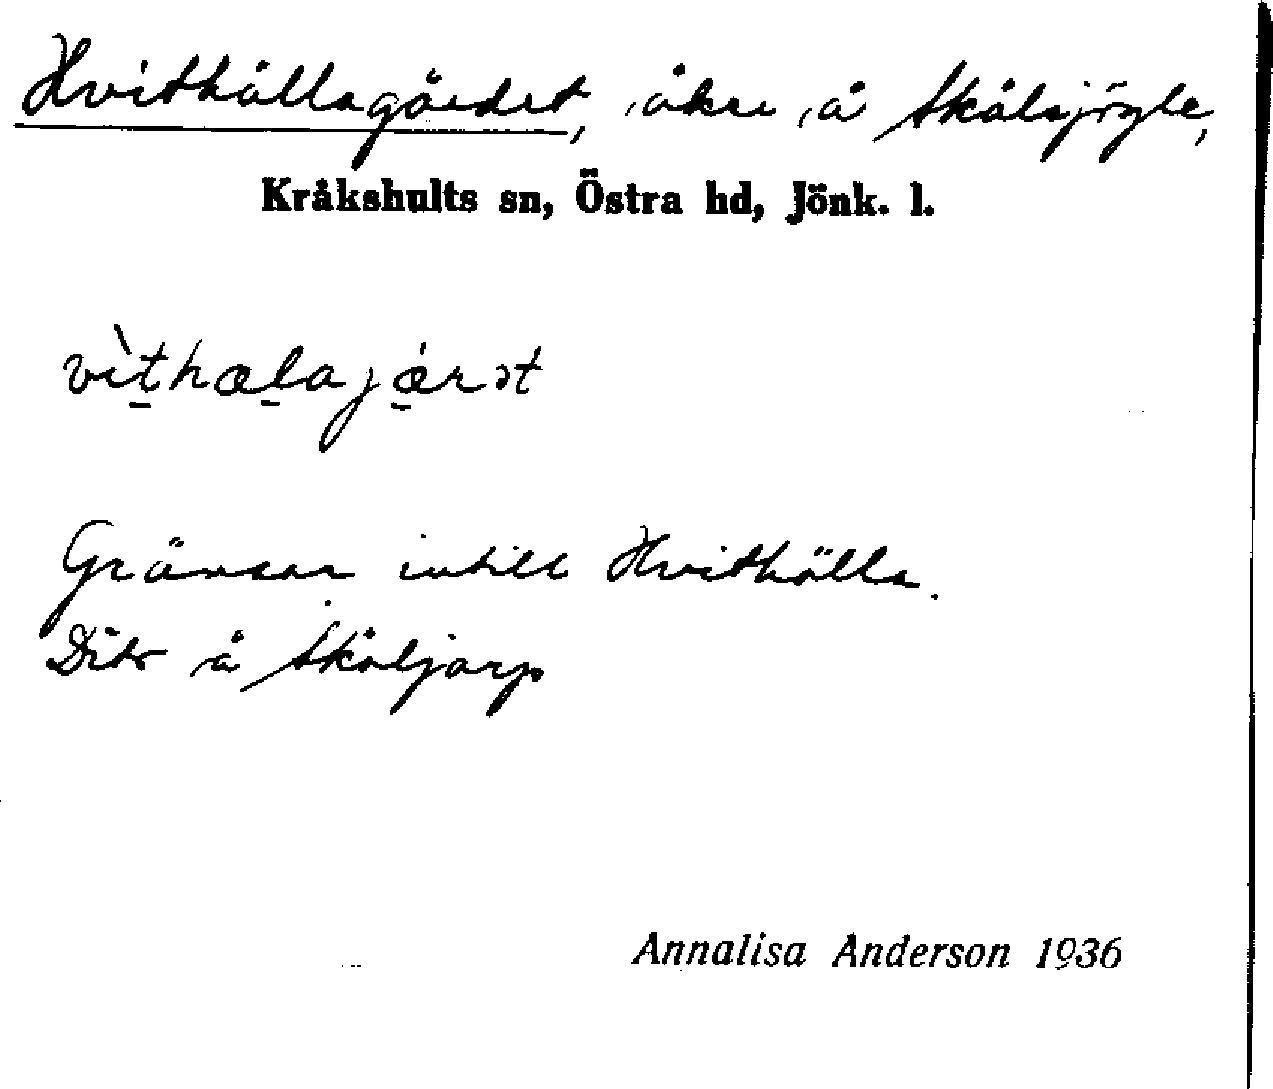 Hvithällagärdet, åker å Skälsjögle,
Kråkshults sn, Östra hd, Jönk. l.
vìthælajǽrət
Gränsar intill Hvithälla.
Dito å Skäljarp
Annalisa Anderson 1936